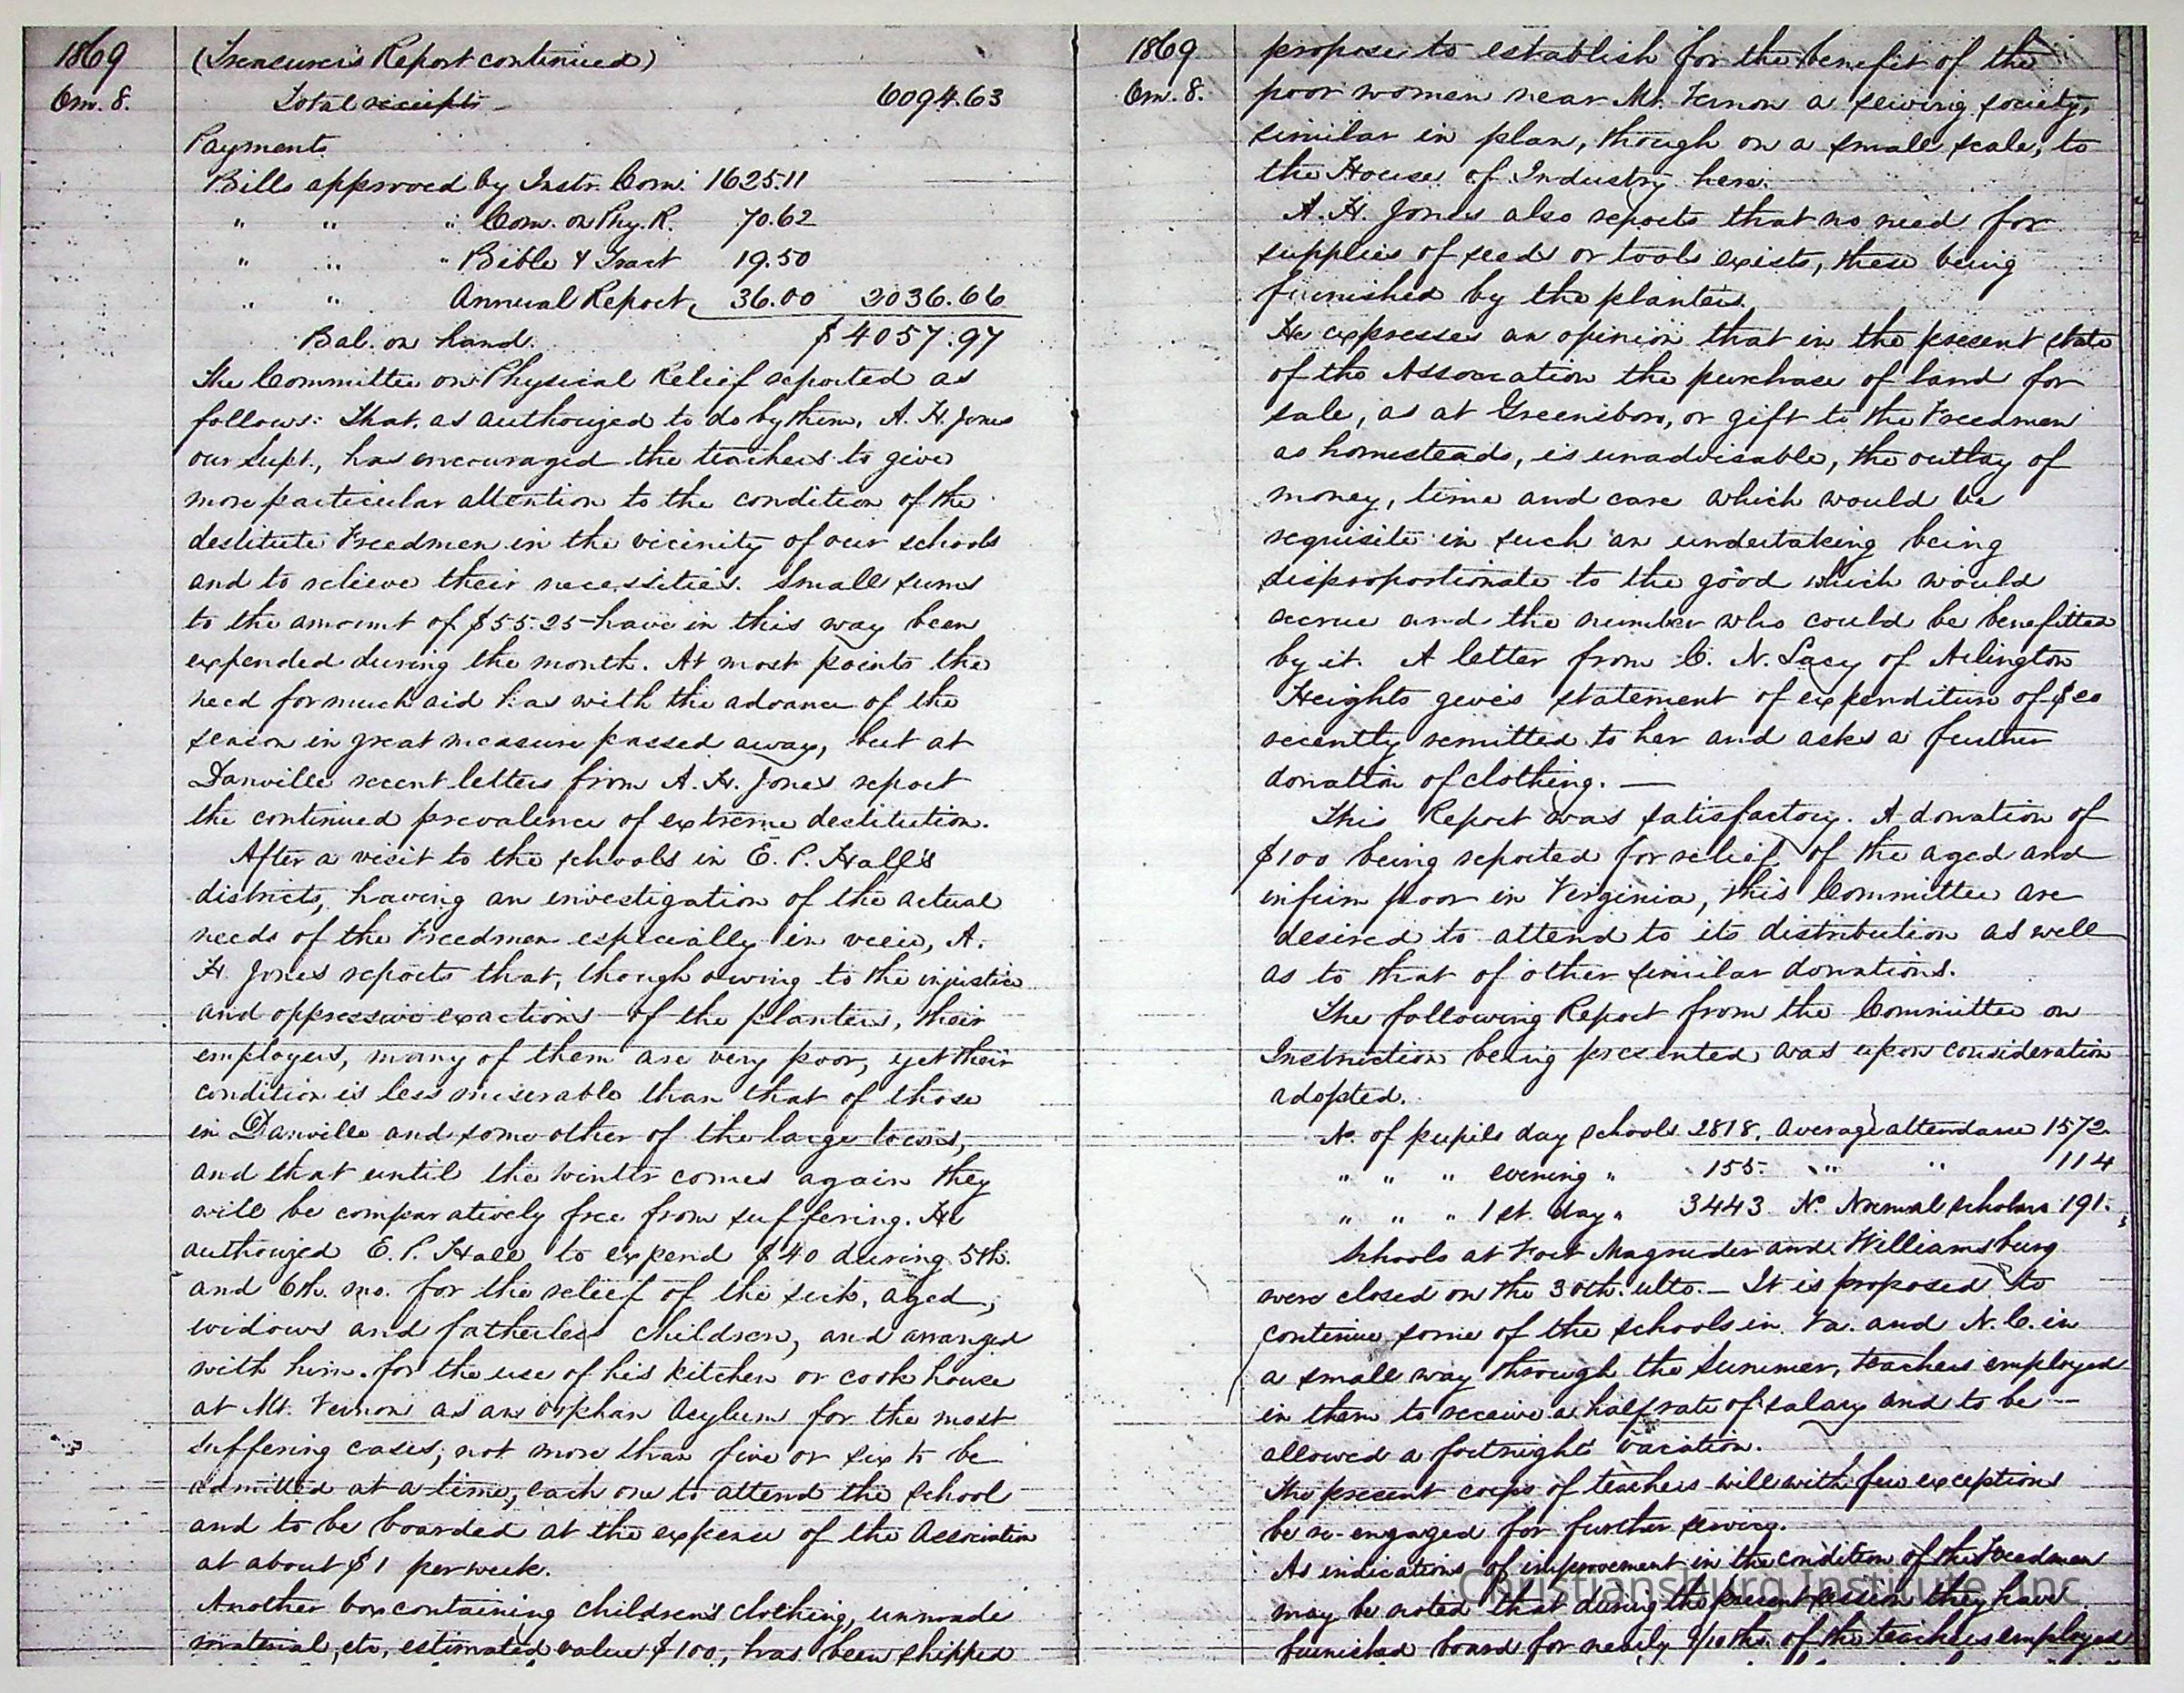 1869
6m. 8.
(Treasurer's Report continued)
Total receipts 6094.63
Payments
Bills approved by Instr. Com. 1625.11
" " " Com. on Phy. R. 70.62
" " " Bible & Tract 19.50
" " Annual Report, 36.00 2036.66
Bal. on hand. $4057.97
The Committee on Physical Relief reported as
follows: That, as authorized to do by them, A. H. Jones
our Supt., has encouraged the teachers to give
more particular attention to the condition of the
destitute Freedmen in the vicinity of our schools
and to relieve their necessities. Small sums
to the amount of $55.25 have in this way been
expended during the month. At most points the
need for much aid has with the advance of the
season in great measure passed away, but at
Danville recent letters from A. H. Jones report
the continued prevalence of extreme destitution.
After a visit to the schools in E. P. Hall's
districts, having an investigation of the actual
needs of the Freedmen especially in view, A.
H. Jones reports that, though owing to the injustice
and oppressive exactions of the planters, their
employers, many of them are very poor, yet their
condition is less miserable than that of those
in Danville and some other of the large towns,
and that until the winter comes again they
will be comparatively free from suffering. He
authorized E. P. Hall to expend $40 during 5th.
and 6th. mo. for the relief of the sick, aged,
widows and fatherless children, and arranged
with him for the use of his kitchen or cook house
at Mt. Vernon as an orphan Asylum for the most
suffering cases; not more than five or six to be
admitted at a time, each one to attend the school
and to be boarded at the expense of the Association
at about $1 per week.
Another box containing children's clothing, unmade
material, etc, estimated value $100, has been shipped
1869
6m. 8.
propose to establish for the benefit of the
poor women near Mt. Vernon a sewing society,
similar in plan, though on a small scale, to
the House of Industry here.
A. H. Jones also reports that no need for
supplies of seeds or tools exists, these being
furnished by the planters.
He expresses an opinion that in the present state
of the Association the purchase of land for
sale, as at Greensboro, or gift to the Freedmen
as homesteads, is unadvisable, the outlay of
money, time and care which would be
requisite in such an undertaking being
disproportionate to the good which would
accrue and the number who could be benefitted
by it. A letter from C. N. Lacy of Arlington
Heights gives statement of expenditure of
recently remitted to her and asks a further
donation of clothing. —
This Report was satisfactory. A donation of
$100 being reported for relief of the aged and
infirm poor in Virginia, this Committee are
desired to attend to its distribution as well
as to that of other similar donations.
The following Report from the Committee on
Instruction being presented was upon consideration
adopted.
No. of pupils day schools 2818, average attendance 1572
" " " evening " 155. " " 114
" " " 1st. day " 3443 No. Normal scholars 191.
Schools at Fort Magruder and Williamsburg
were closed on the 30th. ulto. — It is proposed to
continue some of the schools in Va. and N. C. in
a small way through the Summer, teachers employed
in them to receive a half rate of salary and to be
allowed a fortnight vacation.
The present corps of teachers will with few exceptions
be re-engaged for further service.
As indications of improvement in the condition of the Freedmen
may be noted that during the present session they have
furnished board for nearly 9/10 ths. of the teachers employed
Christiansburg Institute, Inc